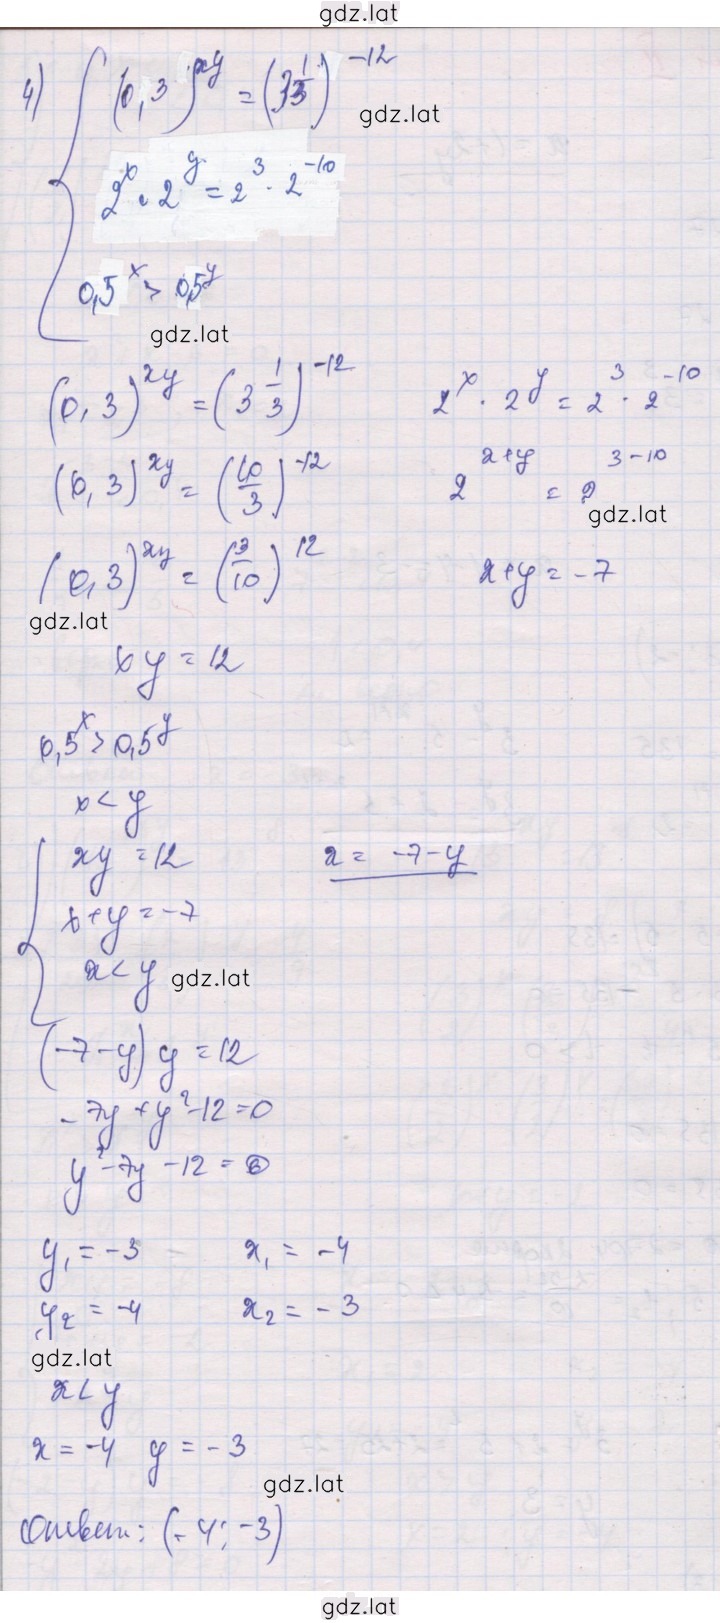 gdz.lat
4) { (0,3)^xy = (3 1/3)^-12
gdz.lat
2^x · 2^y = 2^3 · 2^-10
0,5^x > 0,5^y
gdz.lat
(0,3)^xy = (3 1/3)^-12    2^x · 2^y = 2^3 · 2^-10
(0,3)^xy = (10/3)^-12    2^x+y = 2^3-10
gdz.lat
(0,3)^xy = (3/10)^12    x+y = -7
gdz.lat
xy = 12
0,5^x > 0,5^y
x < y
{ xy = 12    x = -7-y
x+y = -7
x < y gdz.lat
(-7-y) y = 12
-7y + y^2 -12 = 0
y^2 -7y -12 = 0
y₁ = -3    x₁ = -4
y₂ = -4    x₂ = -3
gdz.lat
x < y
x = -4 y = -3
gdz.lat
Ответ: (-4; -3)
gdz.lat